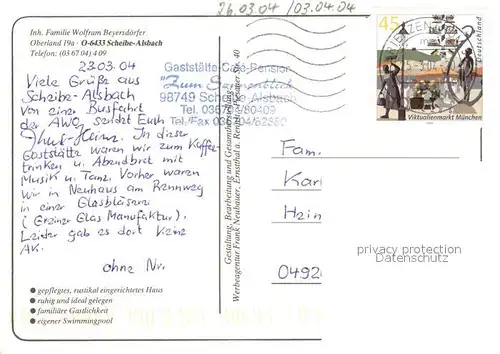 26.03.04 / 03.04.04
Inh. Familie Wolfram Beyersdörfer
Oberland 19a · O-6433 Scheibe-Alsbach
Telefon: (03 67 04) 4 09
Gaststätte-Café-Pension
98749 Scheibe-Alsbach
Tel. 036704/80409
Tel./Fax 036704/82880
45
Deutschland
Viktualienmarkt München
23.03.04
Viele Grüße aus
Scheibe-Alsbach
von einer Busfahrt
der AWO sendet Euch
Heinz. In dieser
Gaststätte waren wir zum Kaffee-
trinken u. Abendbrot mit
Musik u. Tanz. Vorher waren
wir in Neuhaus am Rennweg
in einer Glasbläserei
(Greiner Glas Manufaktur).
Leider gab es dort keine
AK.
ohne Nr.
● gepflegtes, rustikal eingerichtetes Haus
● ruhig und ideal gelegen
● familiäre Gastlichkeit
● eigener Swimmingpool
Gestaltung, Bearbeitung und Gesamtherstellung:
Werbeagentur Frank Neubauer, Ernstthal a. Rennsteig, Straße 40
Fam.
Kar
Hein
0492
privacy protection
Datenschutz